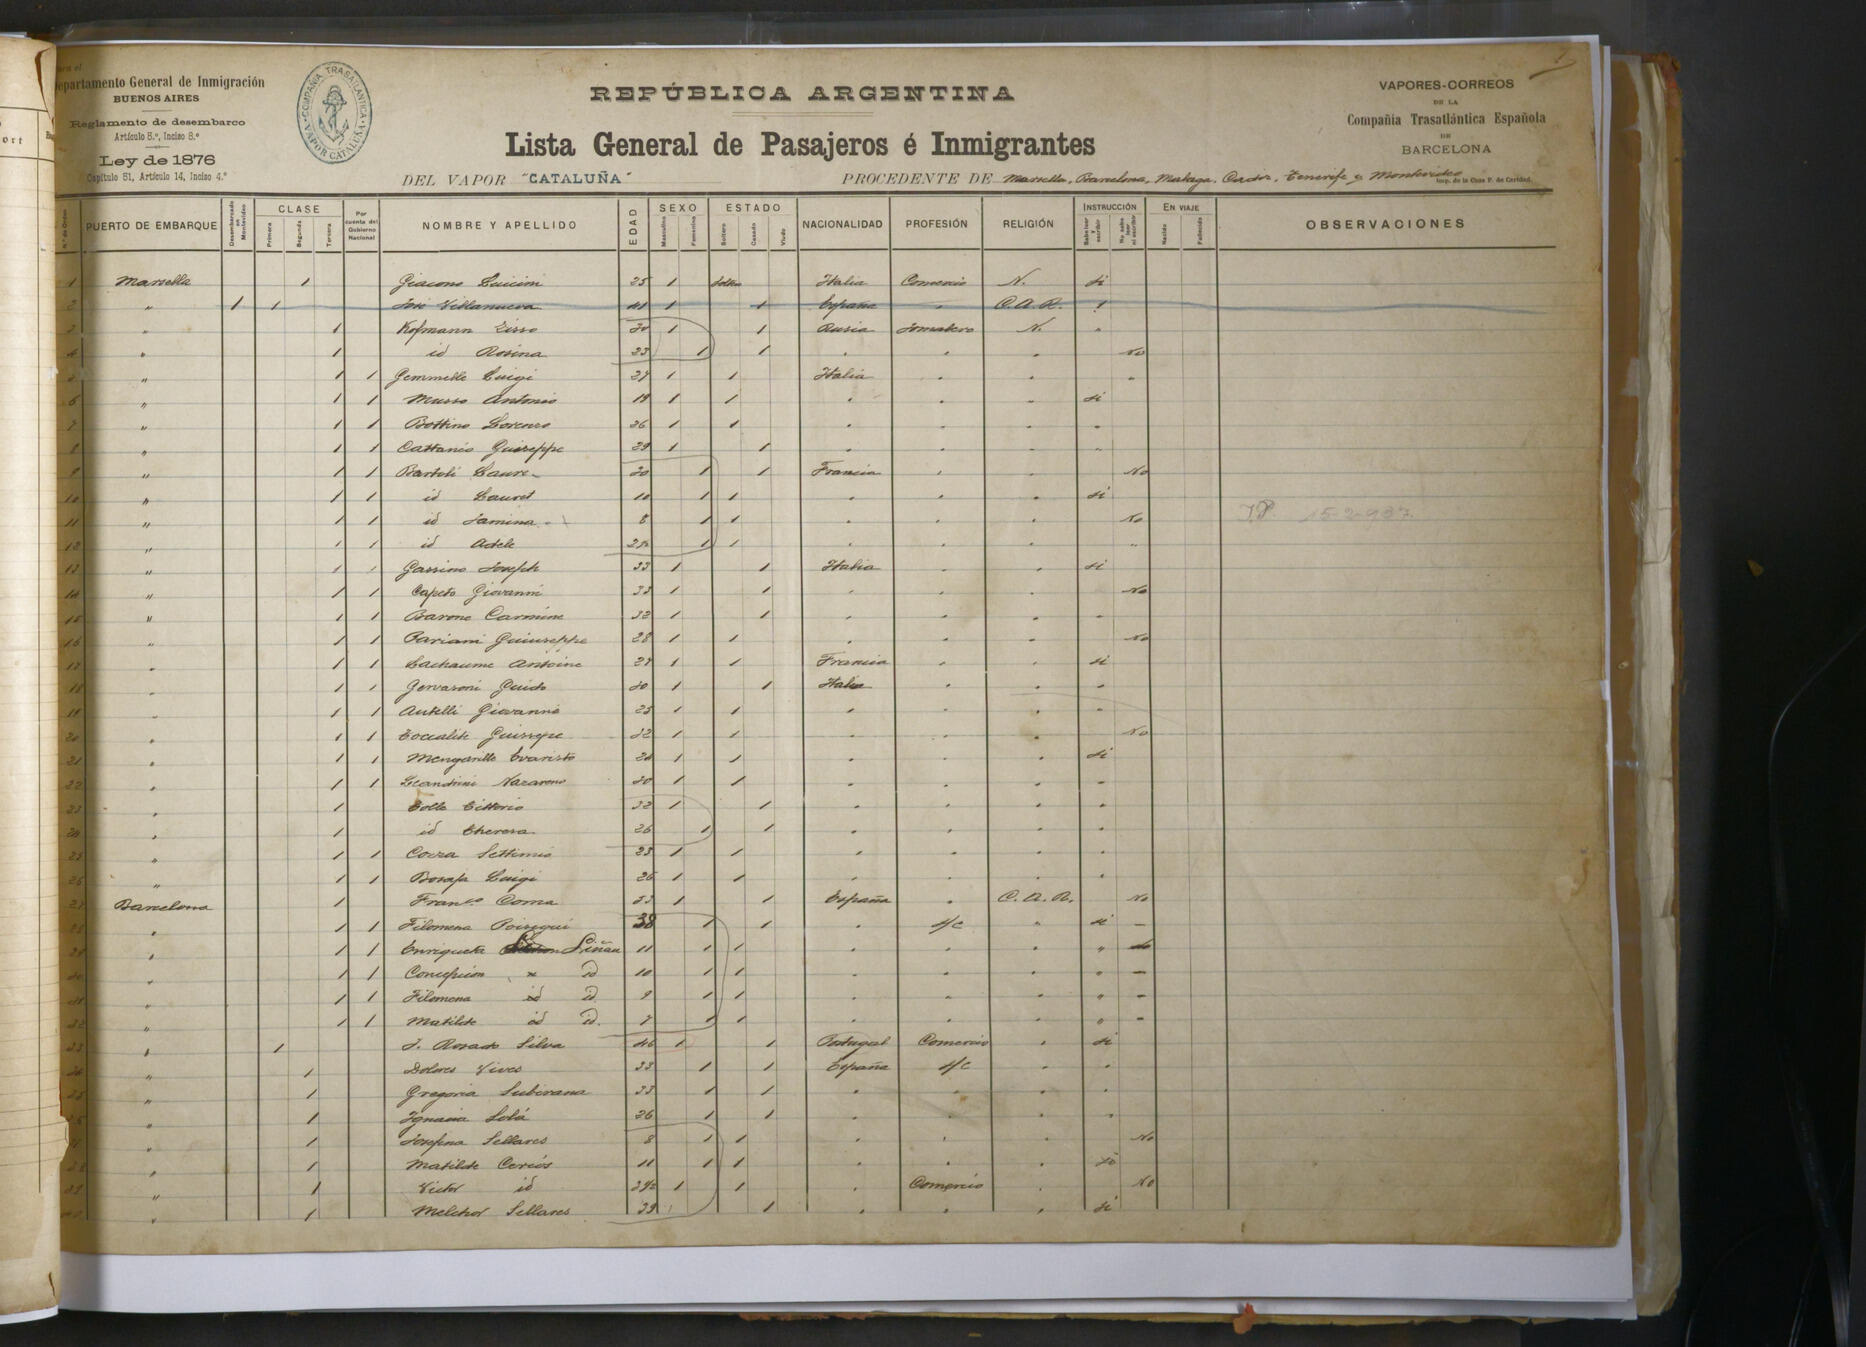 para el
Departamento General de Inmigración
BUENOS AIRES
Reglamento de desembarco
Artículo 5.º, Inciso 8.º
Ley de 1876
Capítulo 51, Artículo 14, Inciso 4.º
COMPAÑIA TRASATLANTICA
VAPOR CATALUÑA
REPÚBLICA ARGENTINA
Lista General de Pasajeros é Inmigrantes
DEL VAPOR "CATALUÑA"
PROCEDENTE DE Marsella, Barcelona, Malaga, Cadiz, Tenerife y Montevideo
VAPORES-CORREOS
DE LA
Compañia Trasatlántica Española
DE
BARCELONA
Imp. de la Casa P. de Caridad.
N.º de Orden PUERTO DE EMBARQUE Desembarcado en Montevideo CLASE Primera Segunda Tercera Por cuenta del Gobierno Nacional NOMBRE Y APELLIDO EDAD SEXO Masculino Femenino ESTADO Soltero Casado Viudo NACIONALIDAD PROFESIÓN RELIGIÓN INSTRUCCIÓN Sabe leer y escribir No sabe leer ni escribir EN VIAJE Nacido Fallecido OBSERVACIONES
1 Marsella 1 Giacomo 25 1 Italia Comercio N. si
2 " 1 1 José Villanueva 41 1 1 España " C.A.R. 1
3 " 1 Kofmann 30 1 1 Rusia Jornalero N. "
4 " 1 id Rosina 23 1 1 " " " No
5 " 1 1 Gemmelle Luigi 27 1 1 Italia " " "
6 " 1 1 Musso Antonio 19 1 1 " " " si
7 " 1 1 Bottino Lorenzo 26 1 1 " " " "
8 " 1 1 Cattaneo Guiseppe 29 1 1 " " " "
9 " 1 1 Bartoli Laure 30 1 1 Francia " " No
10 " 1 1 id Lauret 10 1 1 " " " si
11 " 1 1 id Jamina 8 1 1 " " " No 15-2-937
12 " 1 1 id Adele 1 1 " " " "
13 " 1 1 Garrino Joseph 33 1 1 Italia " " si
14 " 1 1 Capeto Giovanni 33 1 1 " " " No
15 " 1 1 Barone Carmine 32 1 1 " " " "
16 " 1 1 Pariani Guiuseppe 28 1 1 " " " No
17 " 1 1 Lachaume Antoine 27 1 1 Francia " " si
18 " 1 1 Gervasoni Guido 30 1 1 Italia " " "
19 " 1 1 Autelli Giovanni 25 1 1 " " " "
20 " 1 1 Guissepe 32 1 1 " " " No
21 " 1 1 Mengarille Evaristo 24 1 1 " " " si
22 " 1 1 Leandrini Nazareno 30 1 1 " " " "
23 " 1 32 1 1 " " " "
24 " 1 id Theresa 26 1 1 " " " "
25 " 1 1 Cozza Settimio 23 1 1 " " " "
26 " 1 1 Luigi 26 1 1 " " " "
27 Barcelona 1 Fran.co Coma 53 1 1 España " C.A.R. No
28 " 1 1 Filomena Poisegui 38 1 1 " s/c " si –
29 " 1 1 Enriqueta Liñan 11 1 1 " " " "
30 " 1 1 Concepcion " id 10 1 1 " " " " –
31 " 1 1 Filomena id id 9 1 1 " " " " –
32 " 1 1 Matilde id id. 7 1 1 " " " " –
33 " 1 J. Rosado Silva 46 1 1 Portugal Comercio " si
34 " 1 Dolores Vives 33 1 1 España s/c " "
35 " 1 Gregoria Subirana 33 1 1 " " " "
36 " 1 Ignacia Solá 26 1 1 " " " "
37 " 1 Josefina Sellares 8 1 1 " " " No
38 " 1 Matilde Cercós 11 1 1 " " " si
39 " 1 Victor id 1 1 " Comercio " No
40 " 1 Melchor Sellares 39 1 1 " " " si